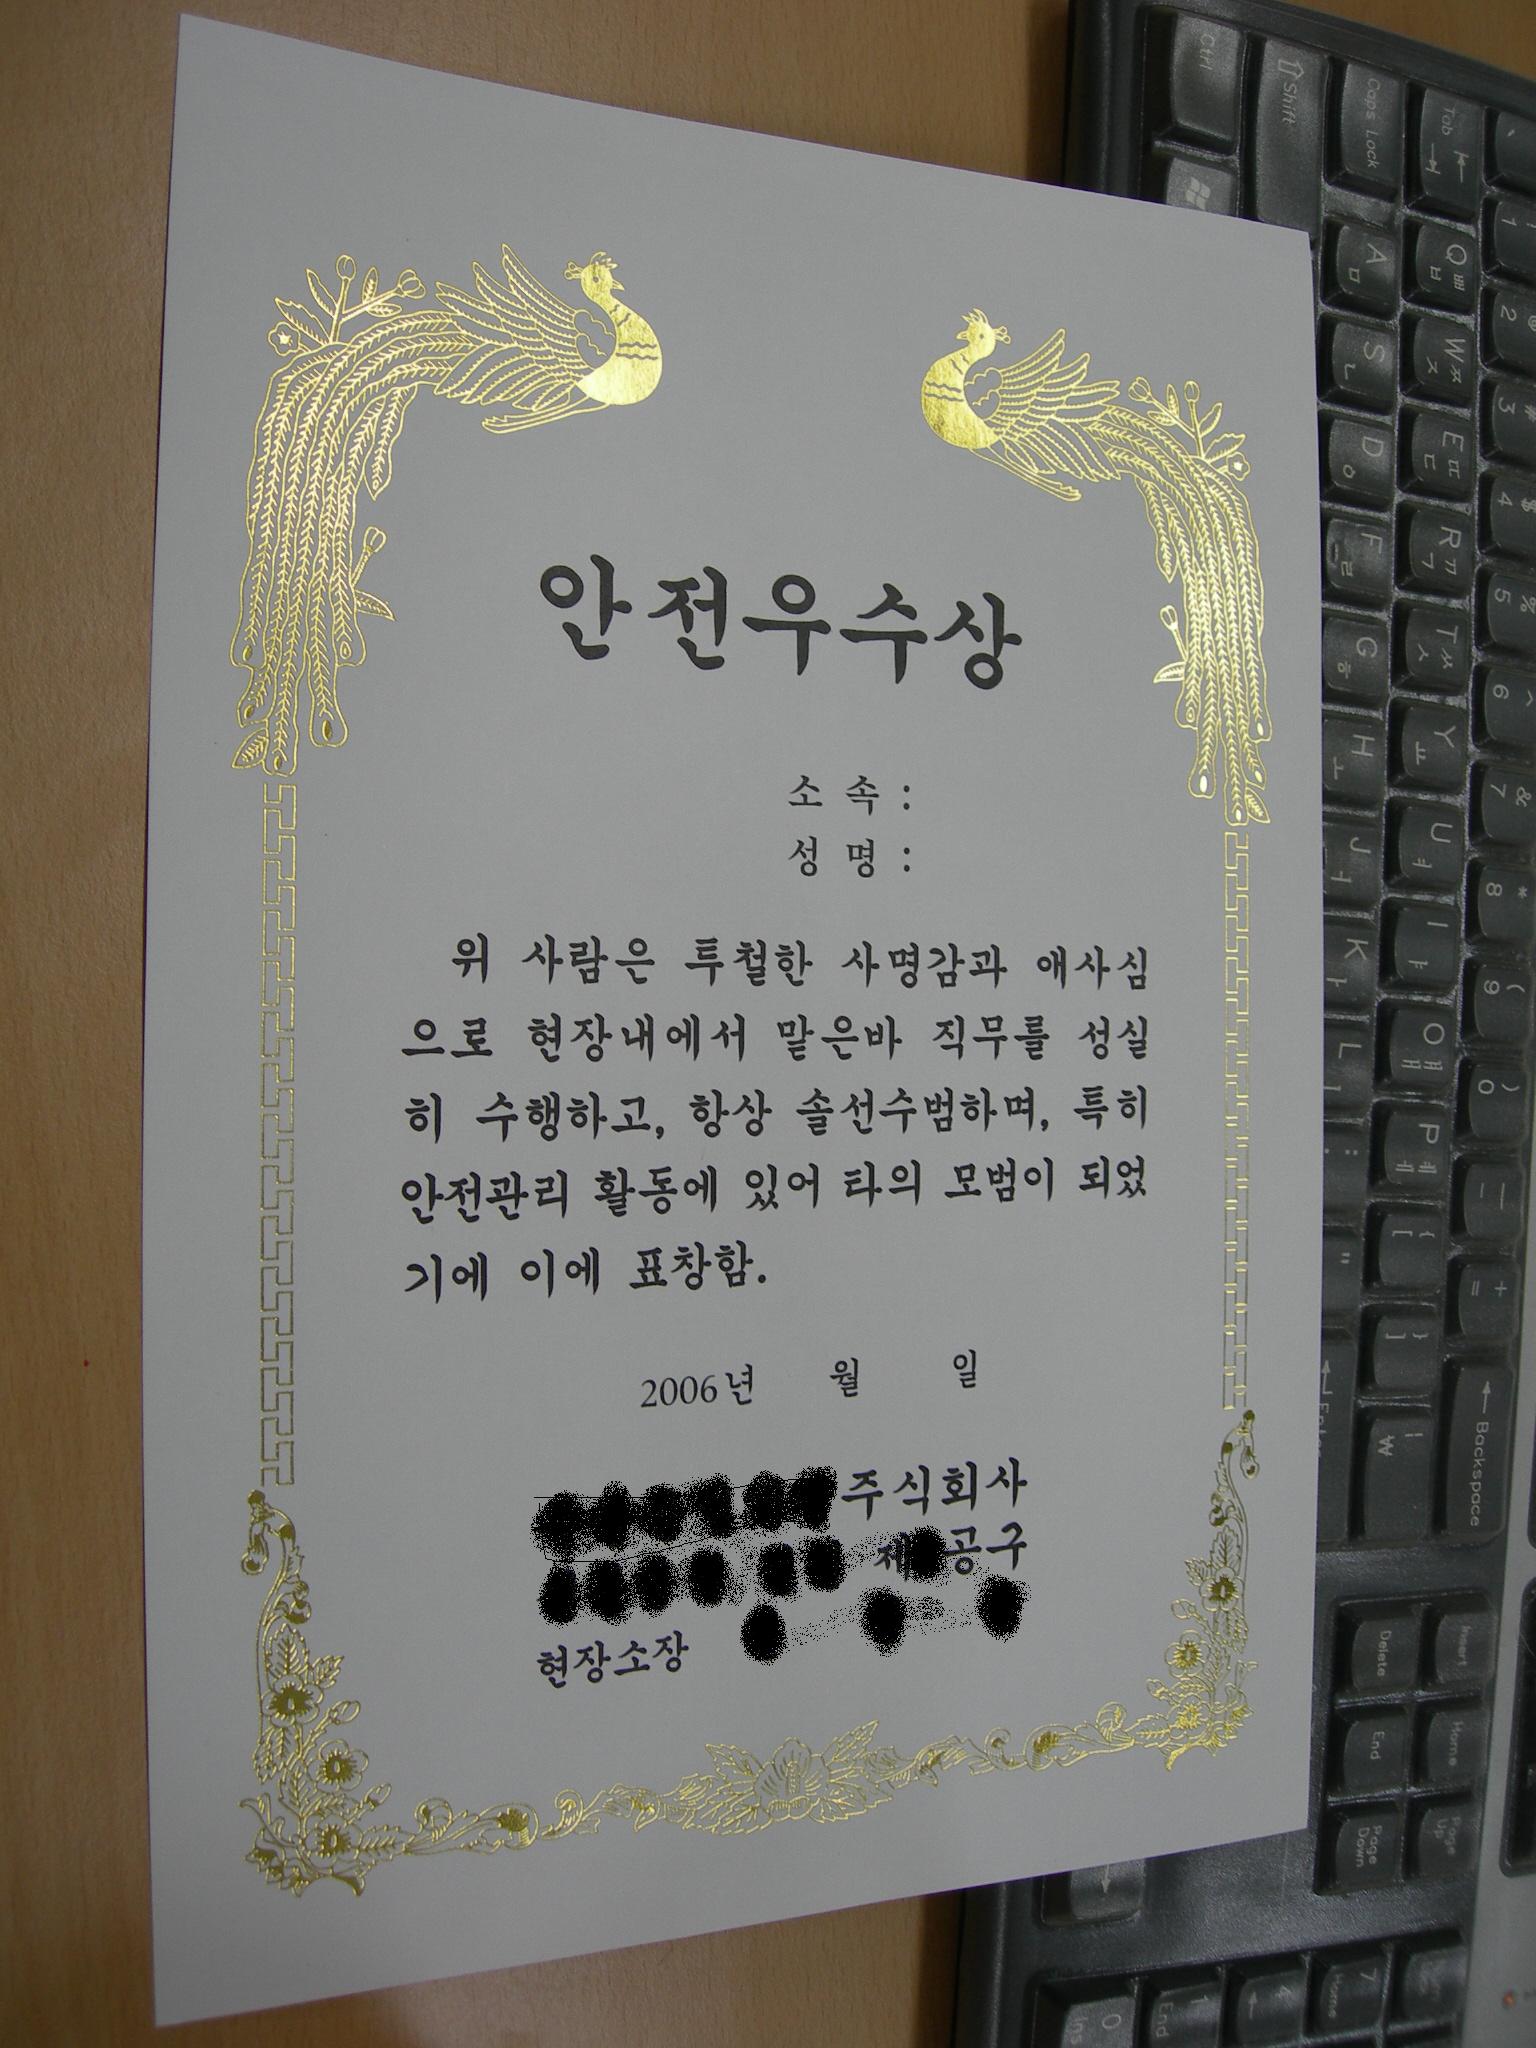 안전우수상
소 속 :
성 명 :
위 사람은 투철한 사명감과 애사심
으로 현장내에서 맡은바 직무를 성실
히 수행하고, 항상 솔선수범하며, 특히
안전관리 활동에 있어 타의 모범이 되었
기에 이에 표창함.
2006년 월 일
주식회사
제 공구
현장소장
Ctrl
Shift
Caps Lock A ㅁ S ㄴ D ㅇ F ㄹ G ㅎ H ㅗ J ㅓ K ㅏ L ㅣ : ; " '
Tab Q ㅂ ㅃ W ㅈ ㅉ E ㄷ ㄸ R ㄱ ㄲ T ㅅ ㅆ Y ㅛ U ㅕ I ㅑ O ㅐ ㅒ P ㅔ ㅖ { [ } ] | ₩
` 1 2 3 $ 4 % 5 ^ 6 & 7 * 8 ( 9 ) 0 + = Backspace
Insert Home Page Up
Delete End Page Down
7 Home 4 1 End 0 Ins